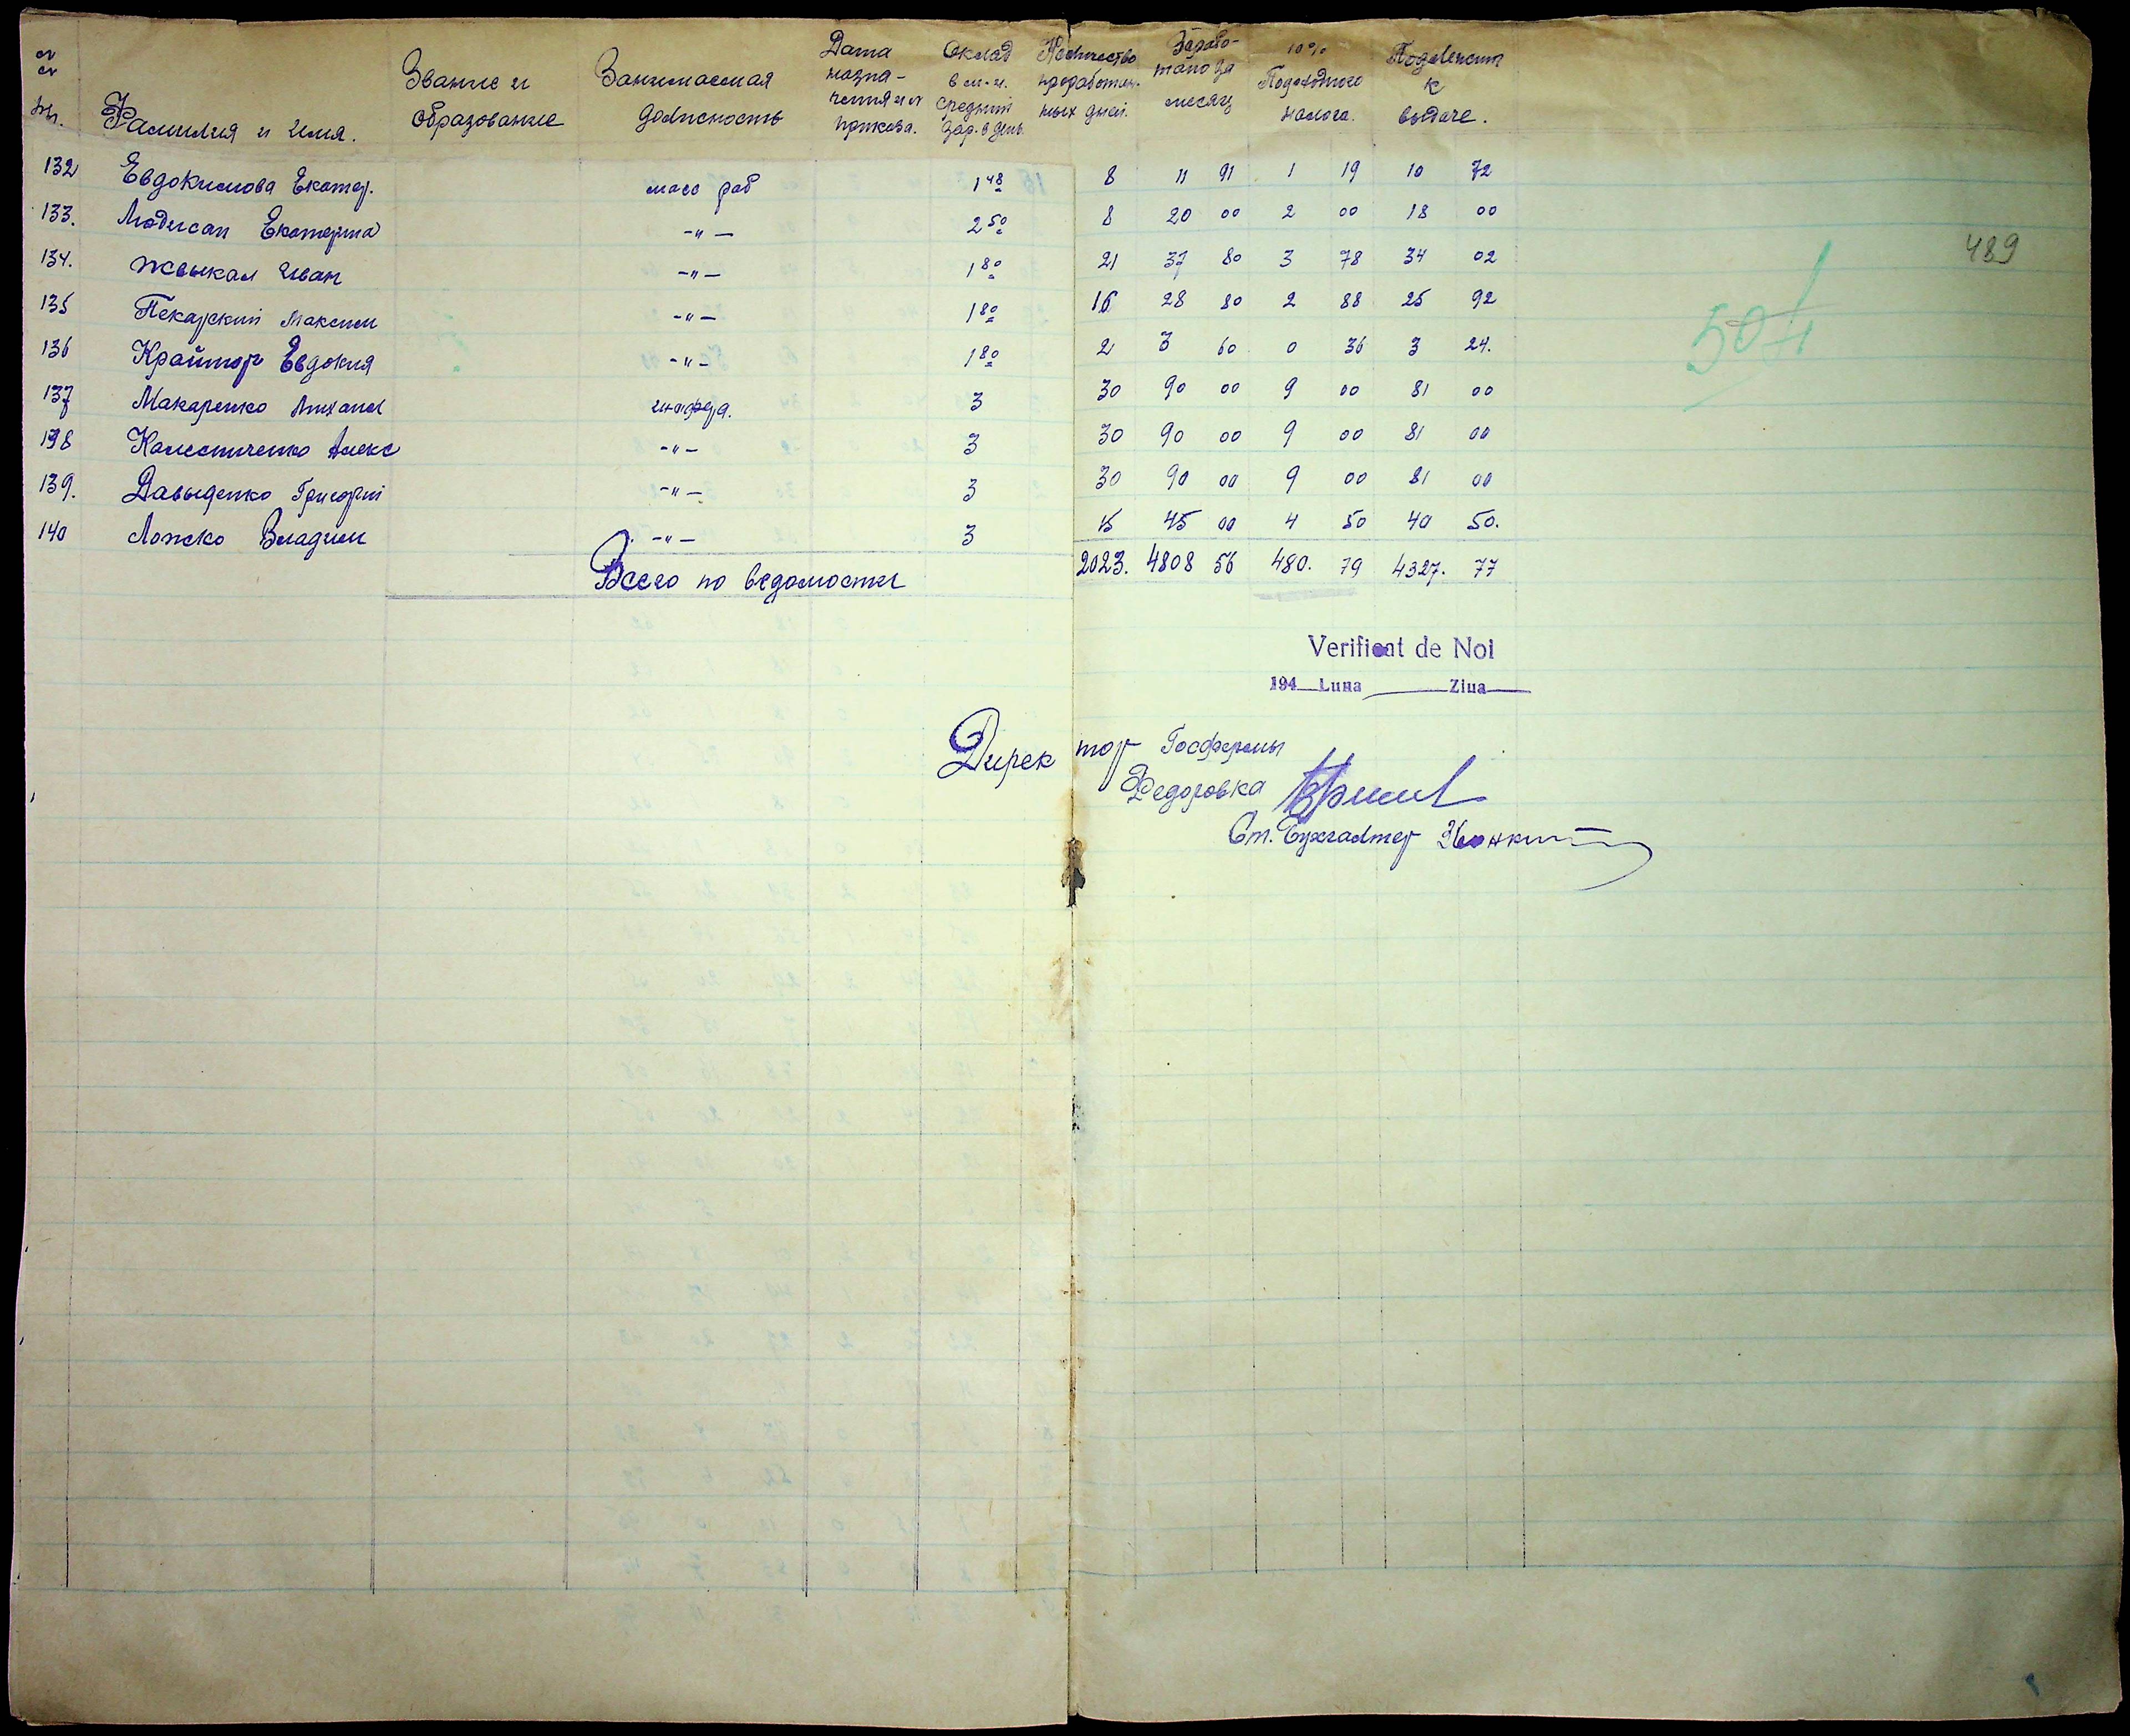 №№ пп. Фамилия и Имя. Звание и образование Занимаемая должность Дата назначения и № приказа. Оклад в м-ц. средний зар. в день Количество проработанных дней. Зарабо-тано за месяц 10% Подоходного налога. Подлежит к выдаче.
132 Евдокимова Екатер. масс раб 1 48 8 11 91 1 19 10 72
133. Екатерина -"- 2 50 8 20 00 2 00 18 00
134. Жвыкал Иван -"- 1 80 21 37 80 3 78 34 02
135 Пекарский Максим -"- 1 80 16 28 80 2 88 25 92
136 Крайтор Евдокия -"- 1 80 2 3 60 0 36 3 24.
137 Макаренко Михаил 3 30 90 00 9 00 81 00
198 Алекс -"- 3 30 90 00 9 00 81 00
139. Давыденко Григорий -"- 3 30 90 00 9 00 81 00
140 Ложко Владим -"- 3 15 45 00 4 50 40 50.
Всего по ведомости 2023. 4808 56 480. 79 4327. 77
489
Verificat de Noi
194 Luna Ziua
Директор Госфермы
Федоровка
Ст. Бухгалтер